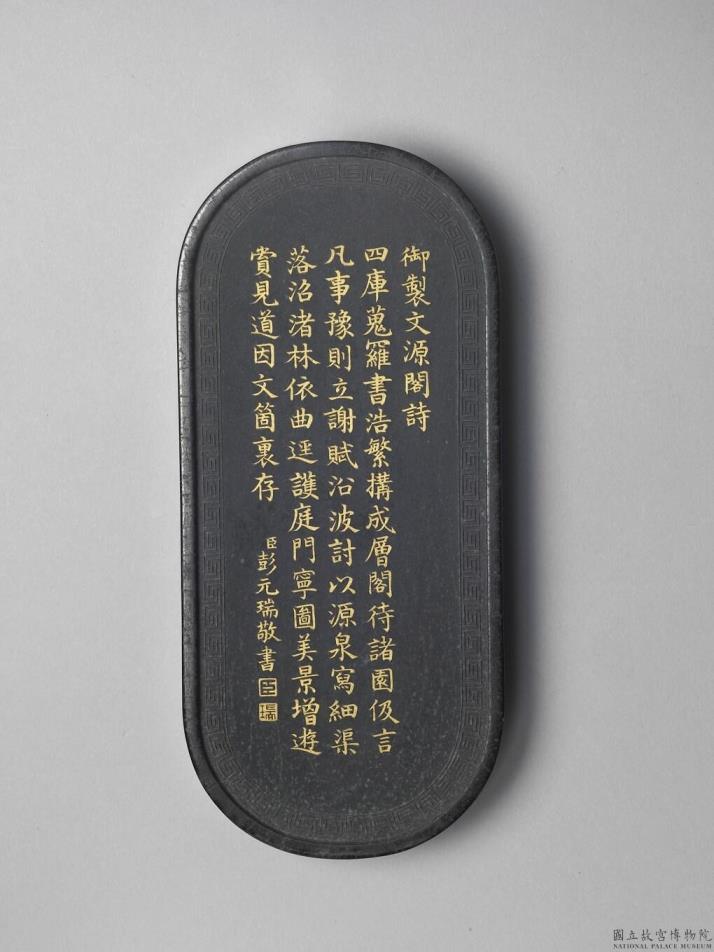 御製文源閣詩
四庫蒐羅書浩繁搆成層閣待諸園伋言
凡事豫則立謝賦沿波討以源泉寫細渠
落沼渚林依曲逕護庭門寧圖美景增遊
賞見道因文箇裏存
臣彭元瑞敬書
臣
瑞
國立故宮博物院
NATIONAL PALACE MUSEUM